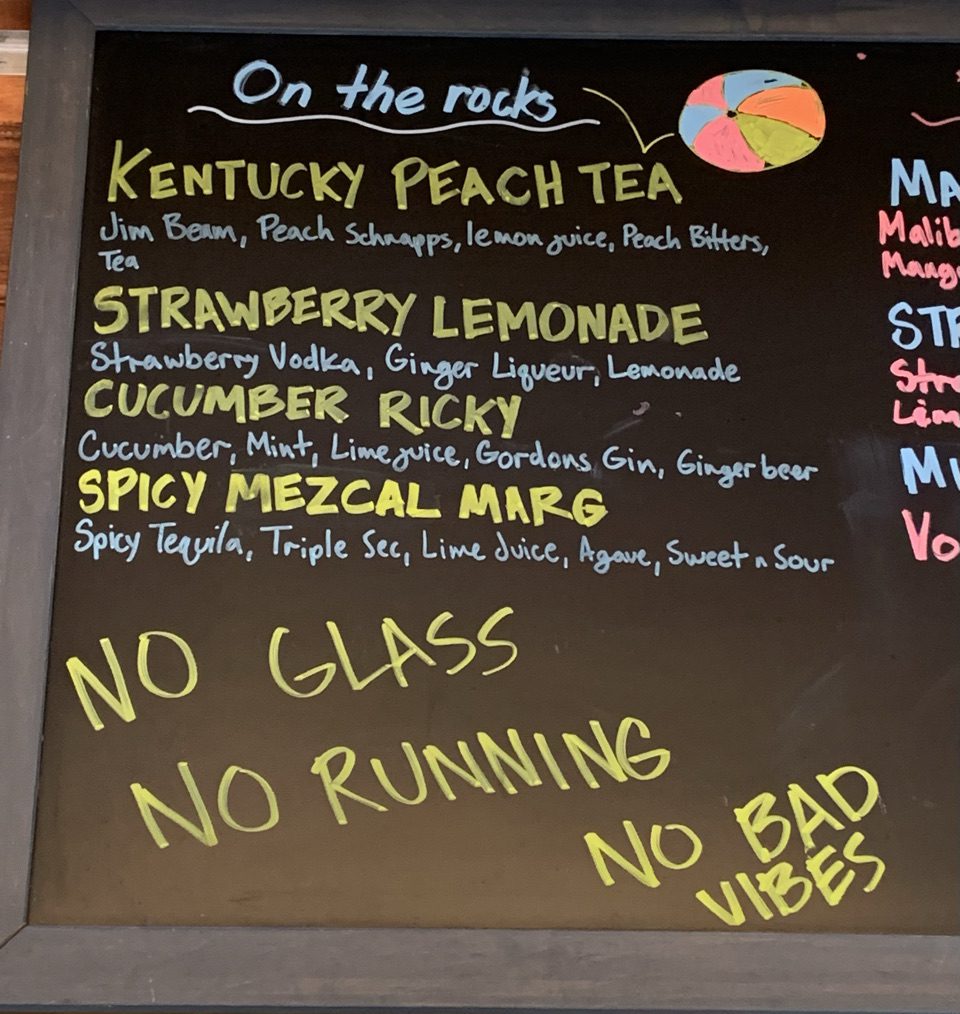 On the rocks
KENTUCKY PEACH TEA
Jim Beam, Peach Schnapps, lemon juice, Peach Bitters,
Tea
STRAWBERRY LEMONADE
Strawberry Vodka, Ginger Liqueur, Lemonade
CUCUMBER RICKY
Cucumber, Mint, Lime juice, Gordons Gin, Ginger beer
SPICY MEZCAL MARG
Spicy Tequila, Triple Sec, Lime Juice, Agave, Sweet n Sour
NO GLASS
NO RUNNING
NO BAD
VIBES
MA
Malib
Mang
STR
Stra
Lim
Vo